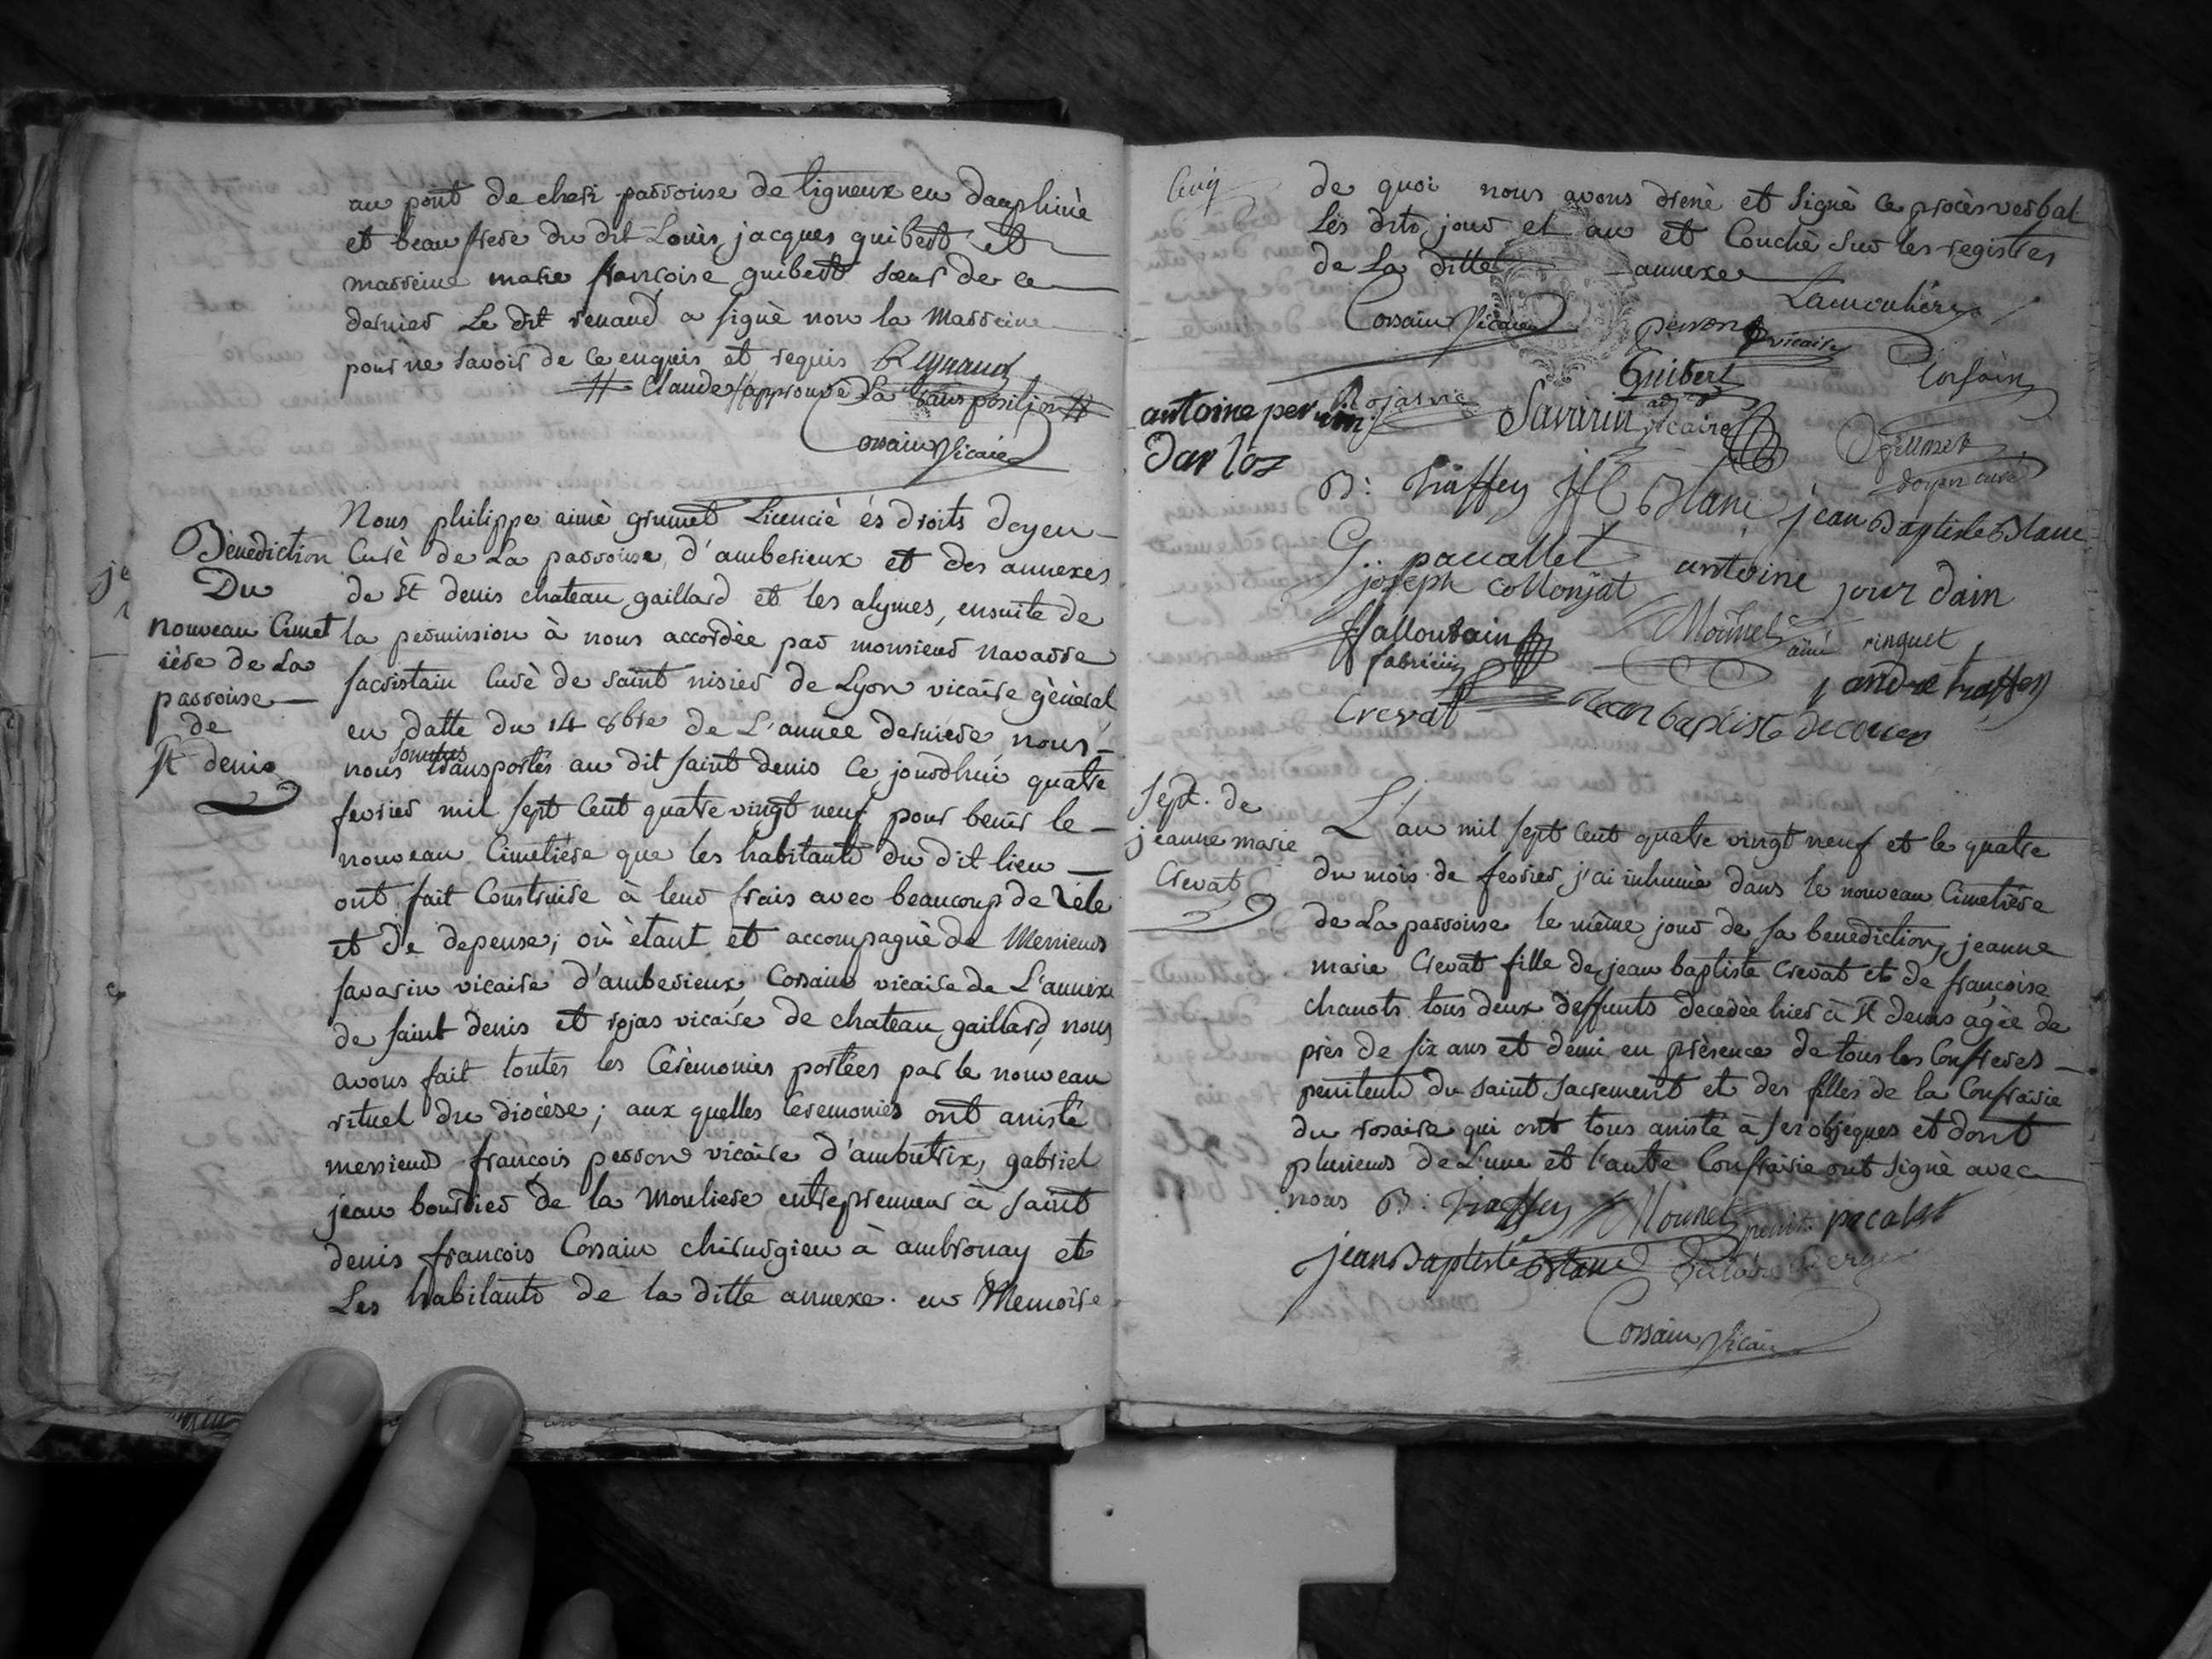 au pont de cheri parroisse de ligneux en dauphinè
et beau frere du dit Louis jacques guibert et
marreine marie françoise guibert sœur de ce
dernier Le dit renaud a signè non la Marreine
pour ne savoir de ce enquis et requis Reynaud
# Claude / approuvè La transposition #
Corsain Vicaire
Bènèdiction
Du
nouveau Cimet
ière de La
parroisse
de
St denis
Nous philippe aimè grumet Licenciè ès droits doyen
Curè de La parroisse d'amberieux et des annexes
de St denis chateau gaillard et les alymes, ensuite de
la permission à nous accordèe par monsieur navarre
sacristain Curè de saint nisier de Lyon vicaire gènèral
en datte du 14 8bre de L'annèe derniere, nous
nous sommes transportès au dit saint denis ce jourdhui quatre
fevrier mil sept cent quatre vingt neuf pour benir le
nouveau Cimetière que les habitants du dit lieu
ont fait Construire à leur frais avec beaucoup de zèle
et de depense; où ètant et accompagnè de Messieurs
savarin vicaire d'amberieux, Corsain vicaire de L'annexe
de saint denis et rojas vicaire de chateau gaillard, nous
avons fait toutes les Cèrèmonies portèes par le nouveau
rituel du diocèse; aux quelles ceremonies ont assistè
messieurs françois perron vicaire d'ambutrix, gabriel
jean bourdier de la Mouliere entrepreneur à saint
denis françois Corsain chirurgien à ambronay et
Les habitants de la ditte annexe. en Memoire
Cinq
de quoi nous avons dressè et signè ce procès verbal
Les dits jour et an et Couchè sur les registres
de La ditte annexe
Lamoulière
Corsain Vicaire
perron vicaire
Guibert
Corsain
antoine perrin
Rojas vic
Savarin vicaire
Grumet
doyen curè
Darloz
B: Truffey
Blanc
jean Baptiste Blanc
G. pacallet
antoine jour dain
joseph collonjat
Mounet
aimé ringuet
fabricien
andre truffey
Crevat
Jean baptiste decoeur
Sept. de
jeanne marie
Crevat
L'an mil sept cent quatre vingt neuf et le quatre
du mois de fevrier j'ai inhumè dans le nouveau Cimetière
de La parroisse le même jour de sa benediction, jeanne
marie Crevat fille de jean baptiste Crevat et de françoise
chanots tous deux deffunts decedèe hier à St denis agèe de
près de six ans et demi en prèsence de tous les Confreres
penitents du saint sacrement et des filles de la Confrairie
du rosaire qui ont tous assistè à ses obseques et dont
plusieurs de L'une et l'autre Confrairie ont signè avec
nous B: Truffey Mounet penit. pacalet
jean Baptiste Blanc
Corsain Vicaire